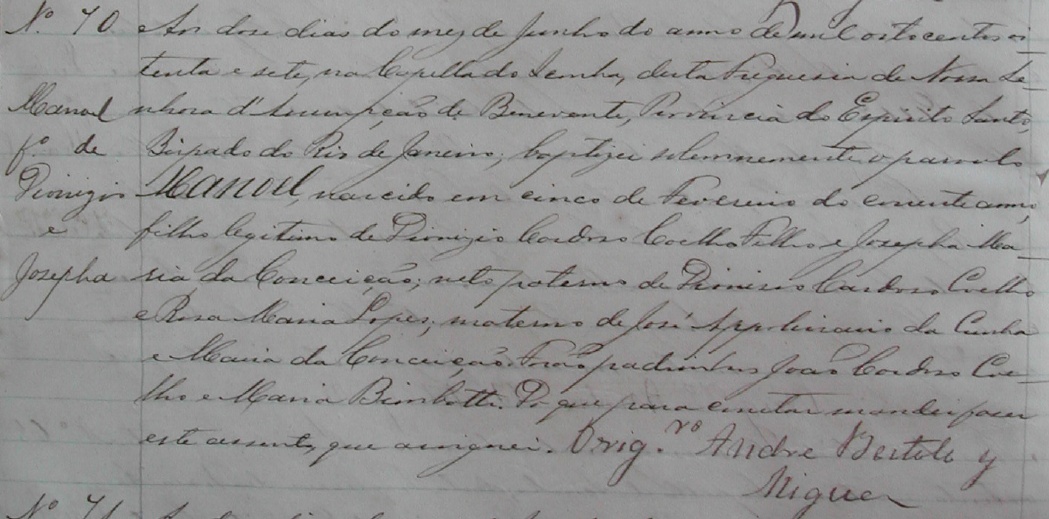 Nº 70. Aos dose dias do mez de Junho do anno de mil oitocentos oi-
tenta e sete, na Capella do Senhor, desta Freguesia de Nossa Se-
Manoel nhora d'Assumpção de Benevente, Provincia do Espirito Santo,
fº de Bispado do Rio de Janeiro, baptizei solemnemente o parvulo
Dionizio Manoel, nascido em cinco de Fevereiro do corrente anno,
e filho legitimo de Dionizio Cardoso Coelho Filho e Josepha Ma-
Josepha ria da Conceição; neto paterno de Dionisio Cardoso Coelho
e Rosa Maria Lopes; materno de José Appolinario da Cunha
e Maria da Conceição. Forão padrinhos João Cardoso Coe-
lho e Maria. Do que para constar mandei faser
este assento, que assignei. Vrig.ro Andre Bertolo y
Miguez
Nº 71.